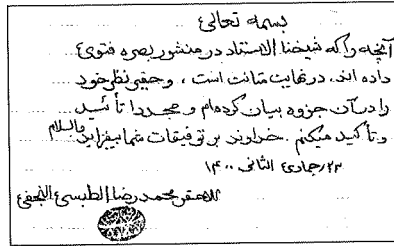 بسمه تعالی
آنچه را که شیخنا الاستاد در منشور بصره فتوی
داده اند، در نهایت متانت است، و حقیر نظر خود
را در آن جزوه بیان کرده ام و مجددا تأئید
و تأکید میکنم. خداوند بر توفیقات شما بیفزاید والسلام
۲۳ رجمادی الثانی ۱۴۰۰
الاحقر محمد رضا الطبسی النجفی